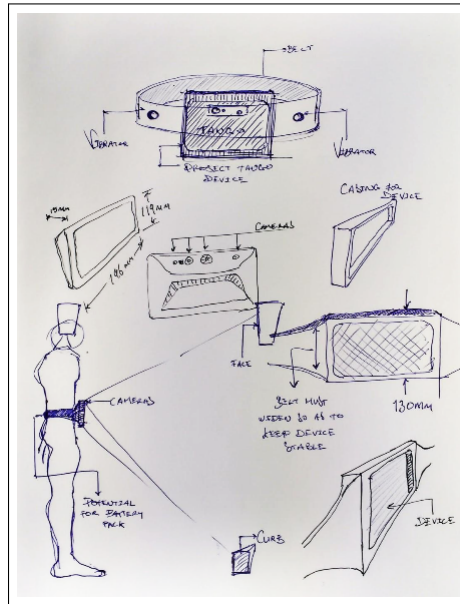 BELT
TANGO
VIBRATOR
VIBRATOR
PROJECT TANGO
DEVICE
CASING FOR
DEVICE
119MM
196MM
CAMERAS
FACE
CAMERAS
BELT MUST
WIDEN SO AS TO
KEEP DEVICE
STABLE
130MM
POTENTIAL
FOR BATTERY
PACK
CURB
DEVICE